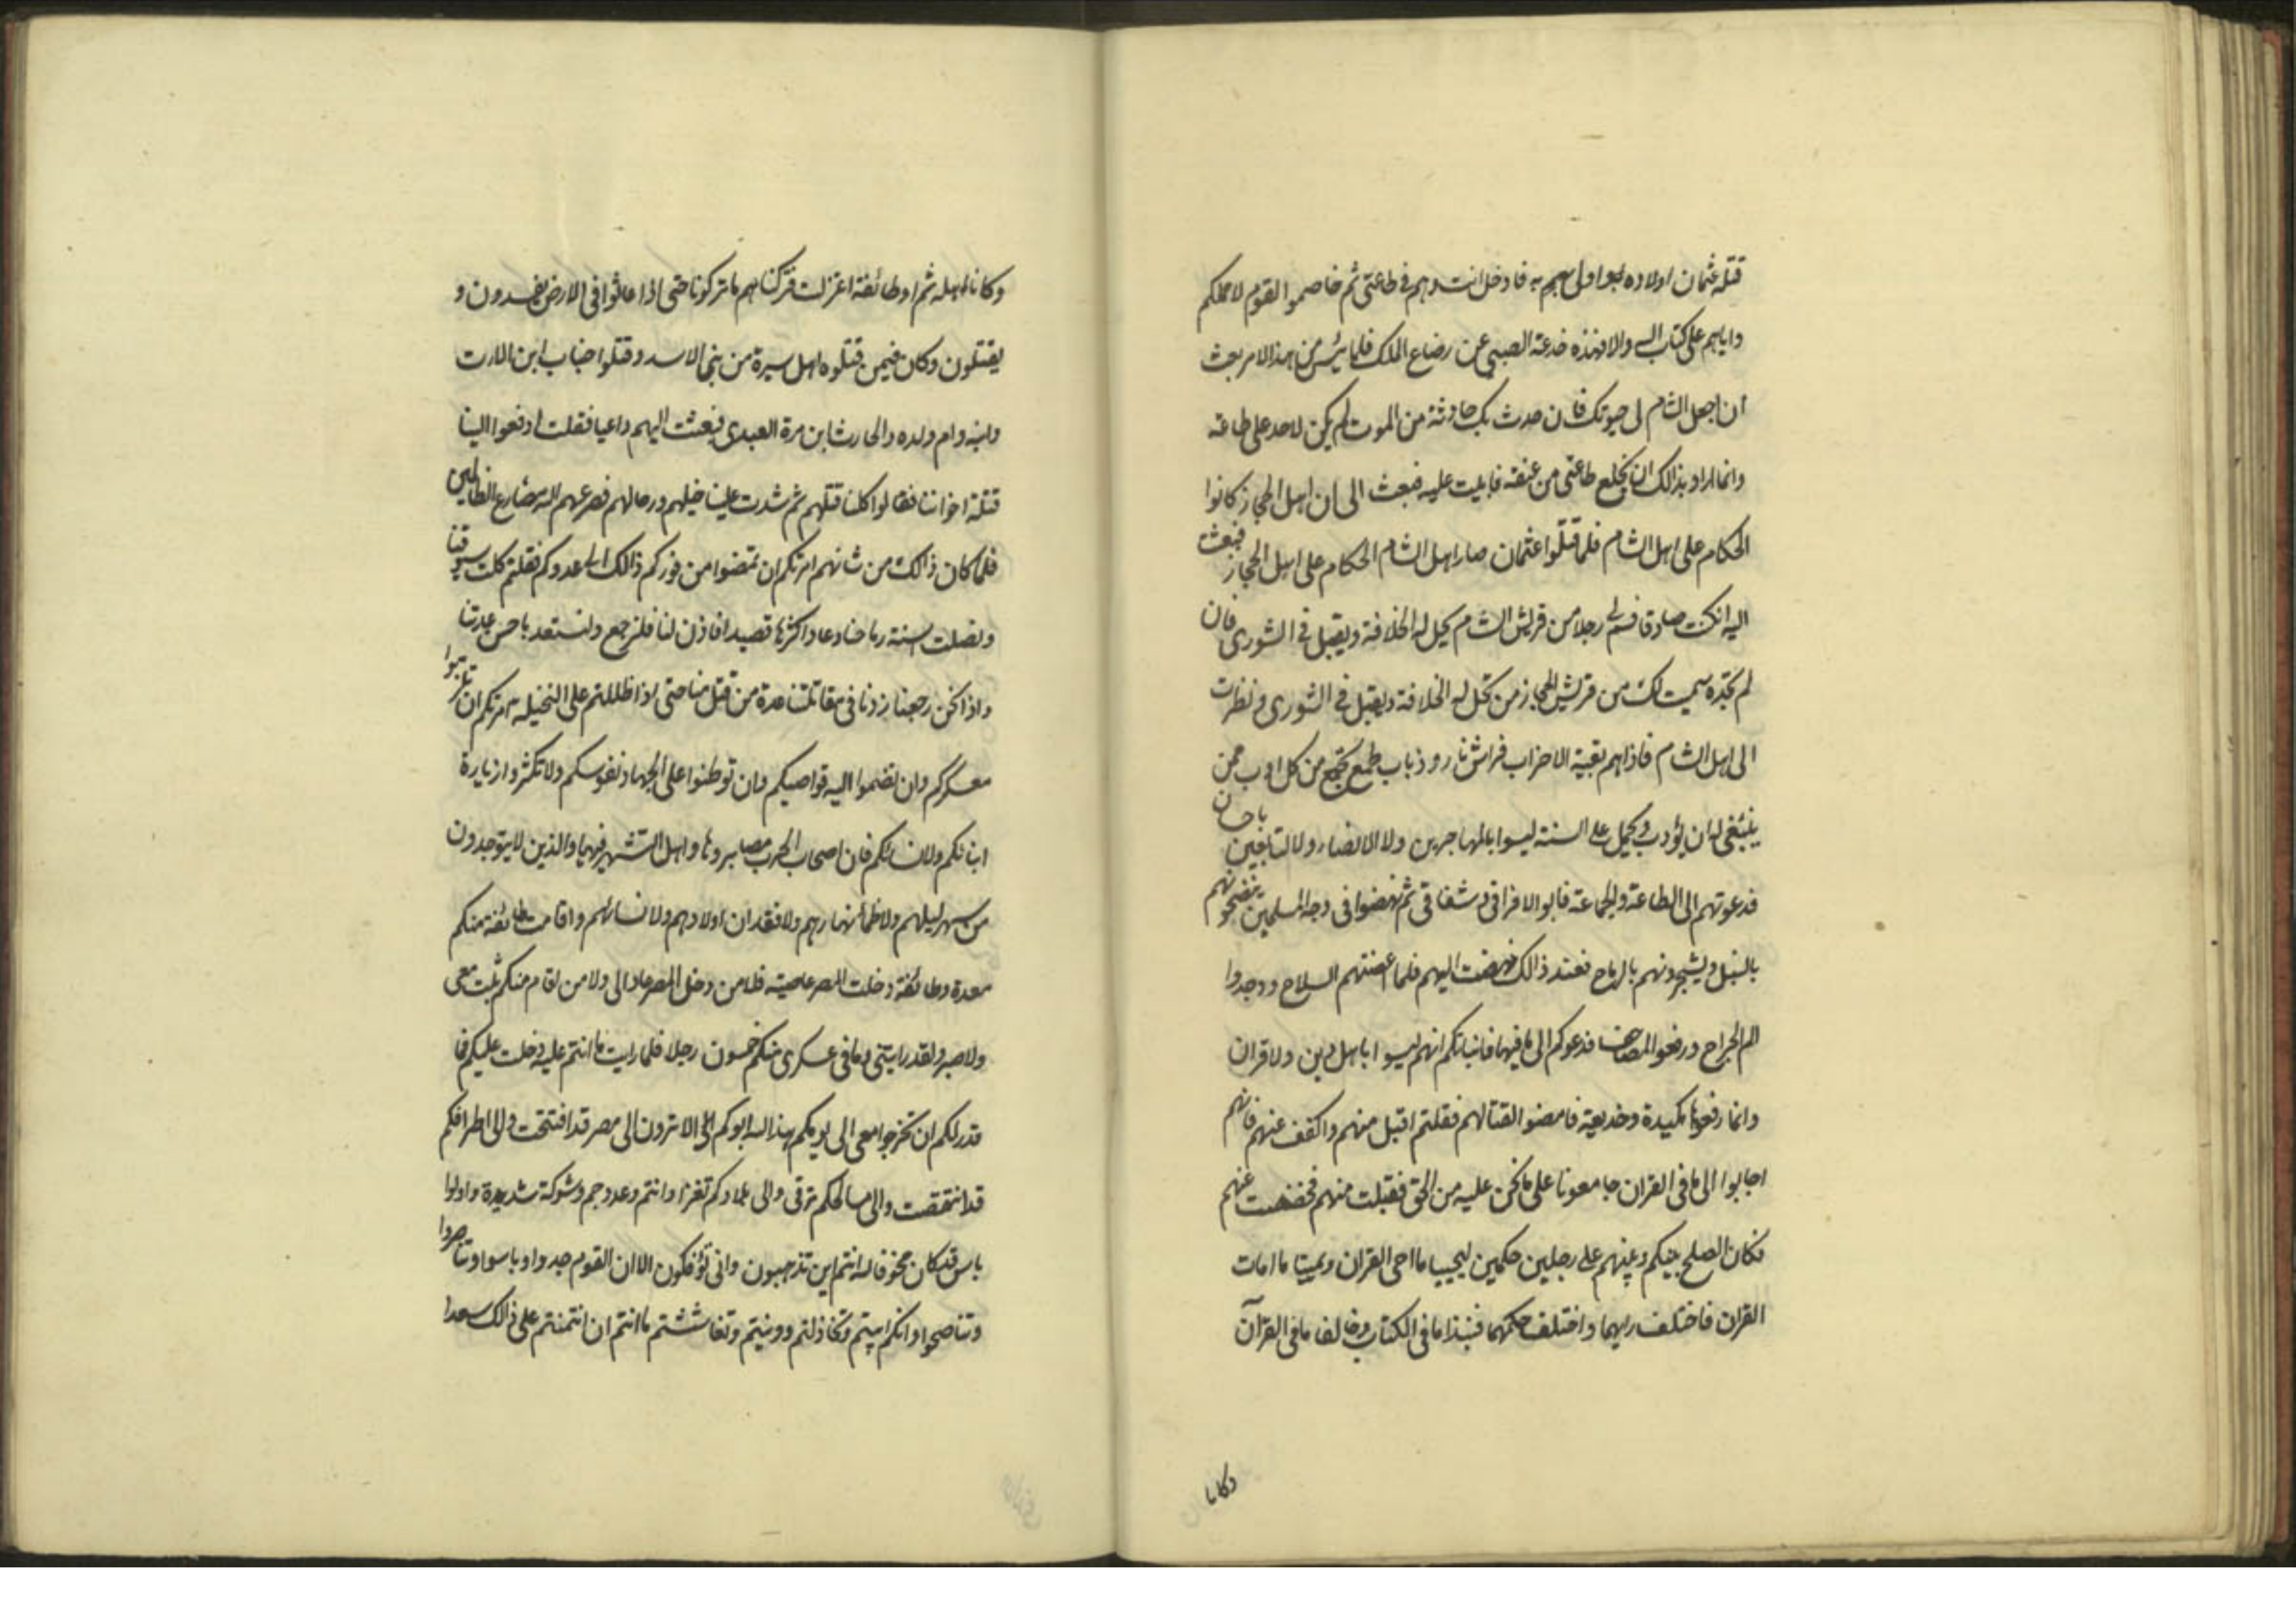 قتلة عثمان اولاده ابو اولى بهم به فادخل انت وهم فى طاعتى ثم خاصموا القوم لاحملكم
واياهم على كتاب الله والا فهذه خدعة الصبى عن رضاع الملك فلما يئس من هذا الامر بعث
ان اجعل الشام لى حيوتك فان حدث بك حادثة من الموت لم يكن لاحد على طاعة
وانما اراد بذالك ان يخلع طاعتى من عنقه فابيت عليه فبعث الى ان اهل الحجاز كانوا
الحكام على اهل الشام فلما قتلوا عثمان صار اهل الشام الحكام على اهل الحجاز فبعثت
اليه ان كنت صادقا فسم لى رجلا من قريش الشام يحل له الخلافة ويقبل فى الشورى فان
لم تجده سميت لك من قريش الحجاز من تحل له الخلافة ويقبل فى الشورى ونظرت
الى اهل الشام فاذا هم بقية الاحزاب فراش نار وذباب طمع تجمع من كل اوب ممن
ينبغى له ان يؤدب ويحمل على السنة ليسوا بالمهاجرين ولا الانصار ولا التابعين باحسان
فدعوتهم الى الطاعة والجماعة فابوا الا فراقى وشقاقى ثم نهضوا فى وجه المسلمين ينضحونهم
بالنبل ويشجرونهم بالرماح فعند ذالك نهضت اليهم فلما عضتهم السلاح ووجدوا
الم الجراح ورفعوا المصاحف فدعوكم الى ما فيها فانباتكم انهم ليسوا باهل دين ولا قران
وانما رفعوها مكيدة وخديعة فامضوا لقتالهم فقلتم اقبل منهم واكفف عنهم فانهم
اجابوا الى ما فى القران جامعونا على ما نحن عليه من الحق فقبلت منهم فخففت عنهم
فكان الصلح بينكم وبينهم على رجلين حكمين ليحييا ما احى القران ويميتا ما امات
القران فاختلف رايهما واختلف حكمهما فنبذا ما فى الكتاب وخالفا ما فى القرآن
وكانا
وكانا اهله ثم ان طائفة اعتزلت فتركناهم ما تركونا حتى اذا عاثوا فى الارض يفسدون و
يقتلون وكان فيمن قتلوه اهل سيرة من بنى الاسد وقتلوا خباب ابن الارت
وابنه وام ولده والحارث ابن مرة العبدى فبعثت اليهم داعيا فقلت ادفعوا الينا
قتلة اخواننا فقالوا كلنا قتلهم ثم شدت علينا خيلهم ورجالهم فصرعهم الله مصارع الظالمين
فلما كان ذالك من شانهم امرتكم ان تمضوا من فوركم ذالك الى عدوكم فقلتم كلت سيوفنا
ونصلت اسنة رماحنا وعاد اكثرها قصيدا فاذن لنا فلنرجع ولنستعد باحسن عدتنا
واذا نحن رجعنا زدنا فى مقاتلتنا عدة من قتل منا حتى اذا ظللتم على النخيلة امرتكم ان تلزموا
معسكركم وان تضموا اليه قواصيكم وان توطنوا على الجهاد نفوسكم ولا تكثروا زيارة
ابنائكم ولا نسائكم فان اصحاب الحرب مصابروها واهل التشمير فيها والذين لا يتوجدون
من سهر ليلهم ولا ظمأ نهارهم ولا فقدان اولادهم ولا نسائهم واقامت طائفة منكم
معدة وطائفة دخلت المصر عاصية فلا من دخل المصر عاد الى ولا من اقام منكم ثبت معى
ولا صبر ولقد رايتنى وما فى عسكرى منكم خمسون رجلا فلما رايت ما انتم عليه دخلت عليكم فما
قدر لكم ان تخرجوا معى الى يومكم هذا لله ابوكم الا ترون الى مصر قد افتتحت والى اطرافكم
قد انتقصت والى مسالحكم ترقى والى بلادكم تغزا وانتم وعدد جم وشوكة شديدة واولوا
باس قد كان مخوفا لله انتم اين تذهبون وانى تؤفكون الا ان القوم جدوا وباسوا وتناصروا
وتناصحوا وانكم ابيتم وتخاذلتم وونيتم وتغاششتم ما انتم ان اتتمنتم على ذالك سعدا